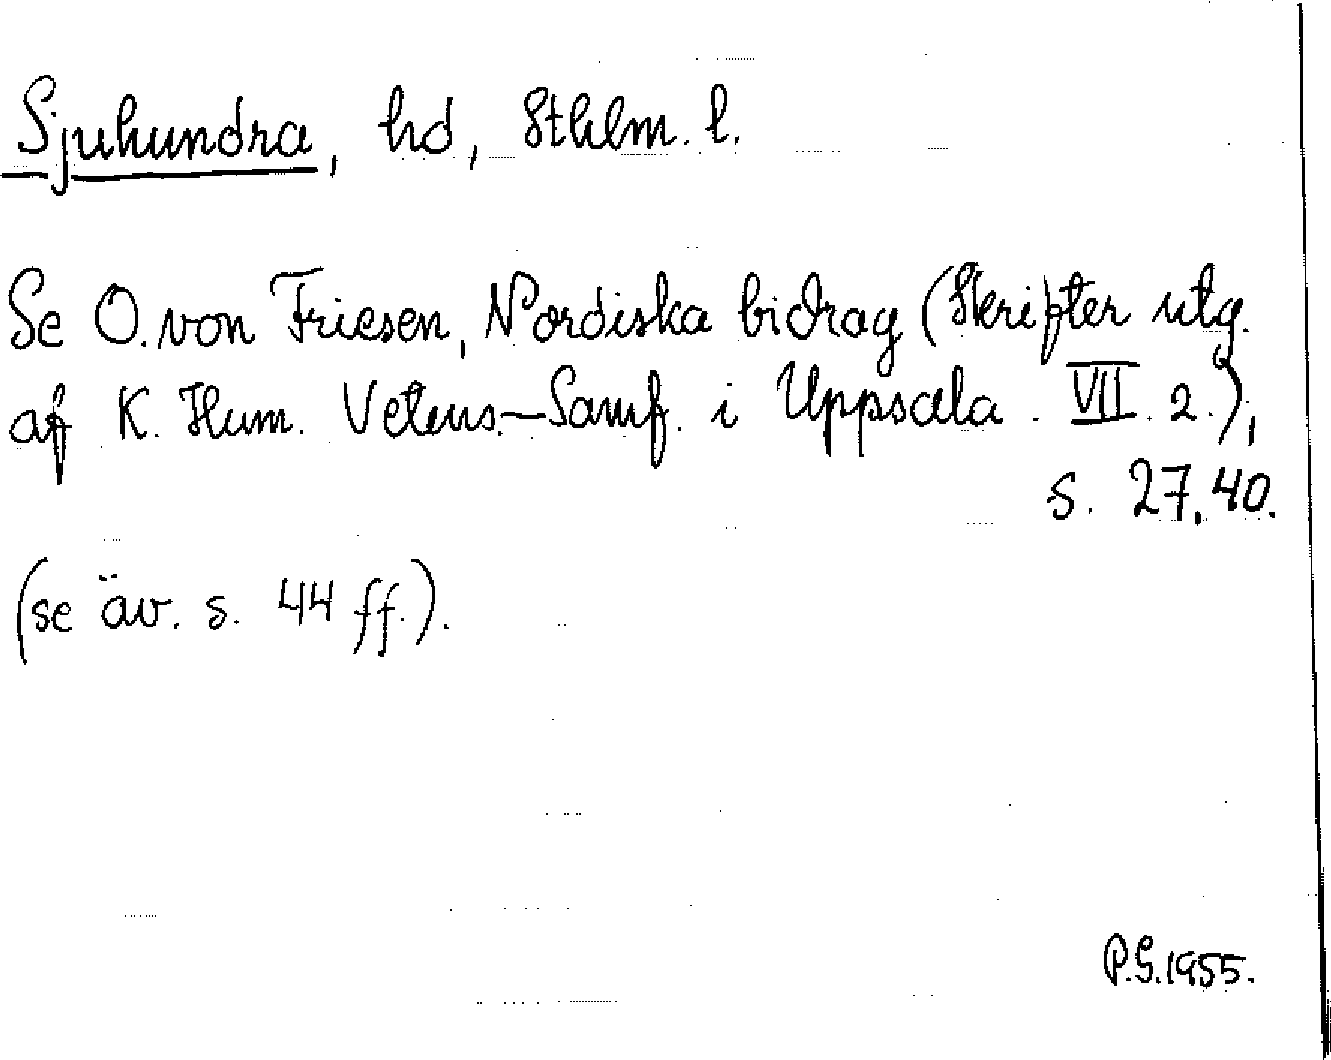 Sjuhundra, hd, Sthlm. l.
Se O. von Friesen, Nordiska bidrag (Skrifter utg.
af K. Hum. Vetens.-Samf. i Uppsala. VII. 2.),
s. 27, 40.
(se äv. s. 44 ff.).
P.G. 1955.